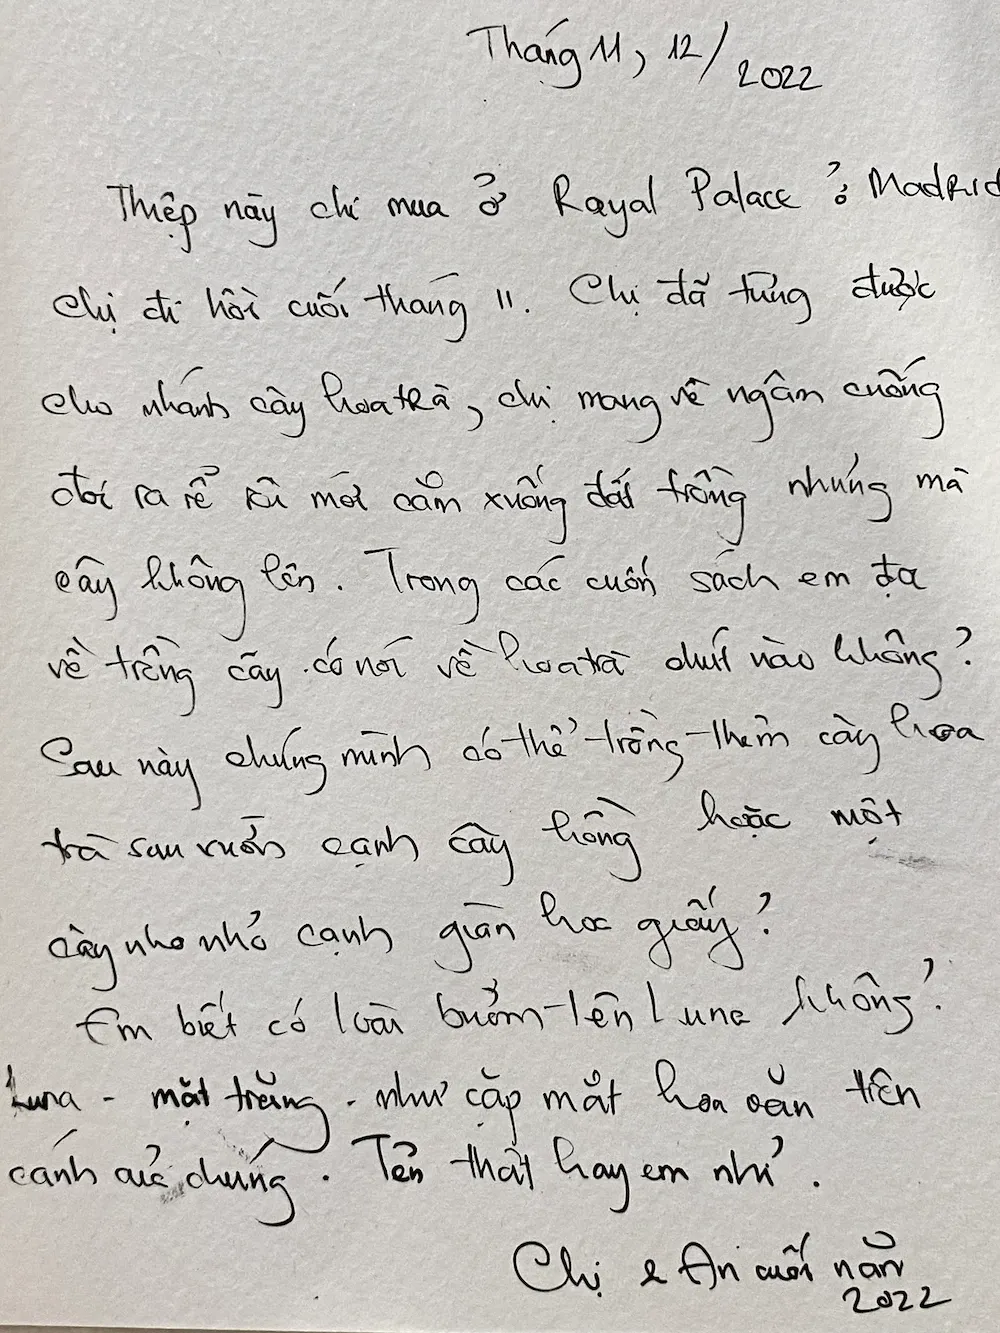 Tháng 11, 12/2022
Thiệp này chị mua ở Royal Palace ở Madrid
chị đi hồi cuối tháng 11. Chị đã từng được
cho nhánh cây hoa trà, chị mang về ngâm cuống
đợi ra rễ rồi mới cắm xuống đất trồng nhưng mà
cây không lên. Trong các cuốn sách em đọc
về trồng cây có nói về hoa trà chút nào không?
Sau này chúng mình có thể trồng thêm cây hoa
trà sau vườn cạnh cây hồng hoặc một
cây nho nhỏ cạnh giàn hoa giấy?
Em biết có loài bướm tên Luna không?
Luna - mặt trăng - như cặp mắt hoa văn trên
cánh của chúng. Tên thật hay em nhỉ.
Chị & An cuối năm
2022